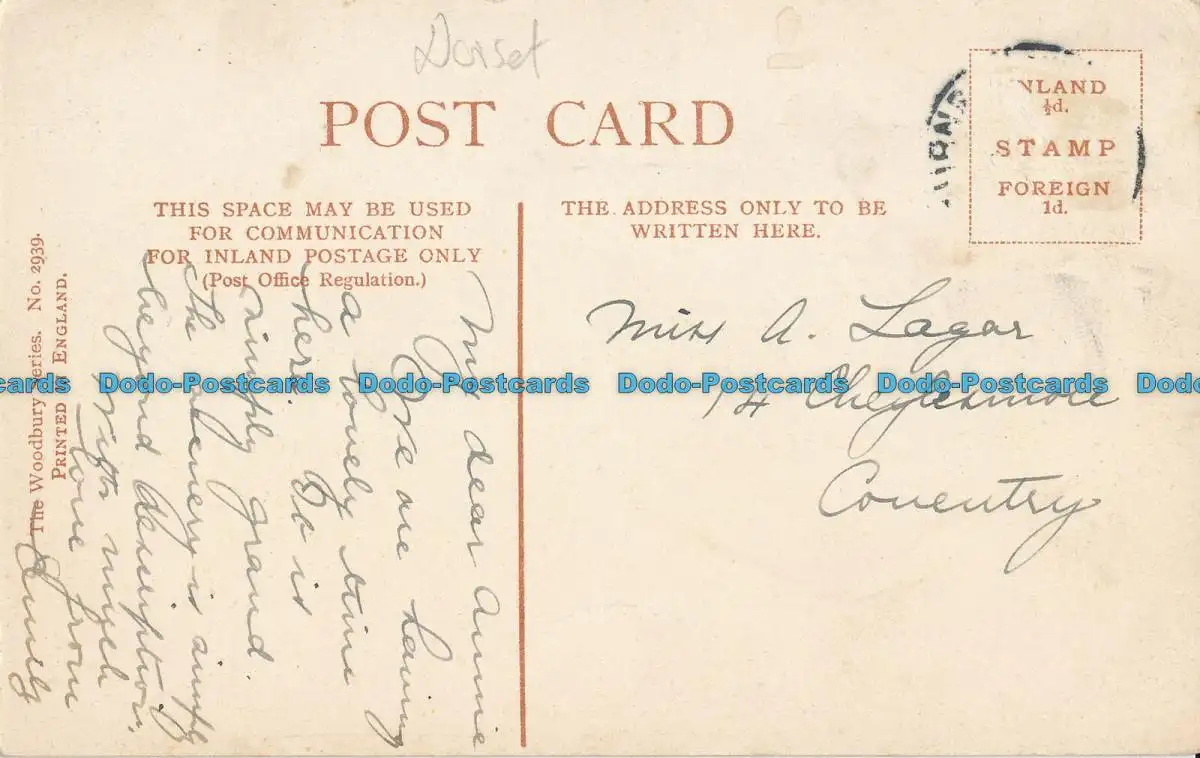 Dorset
POST CARD
INLAND
½d.
STAMP
FOREIGN
1d.
THIS SPACE MAY BE USED
FOR COMMUNICATION
FOR INLAND POSTAGE ONLY
(Post Office Regulation.)
THE ADDRESS ONLY TO BE
WRITTEN HERE.
The Woodbury Series. No. 2939.
PRINTED IN ENGLAND.
My dear Annie
We are having
a lovely time
here. It is
simply grand
The scenery is simply
beyond description,
With much
love from
Emily
Miss A. Lagar
14 Cheylesmore
Coventry
Dodo-Postcards Dodo-Postcards Dodo-Postcards Dodo-Postcards Dodo-Postcards